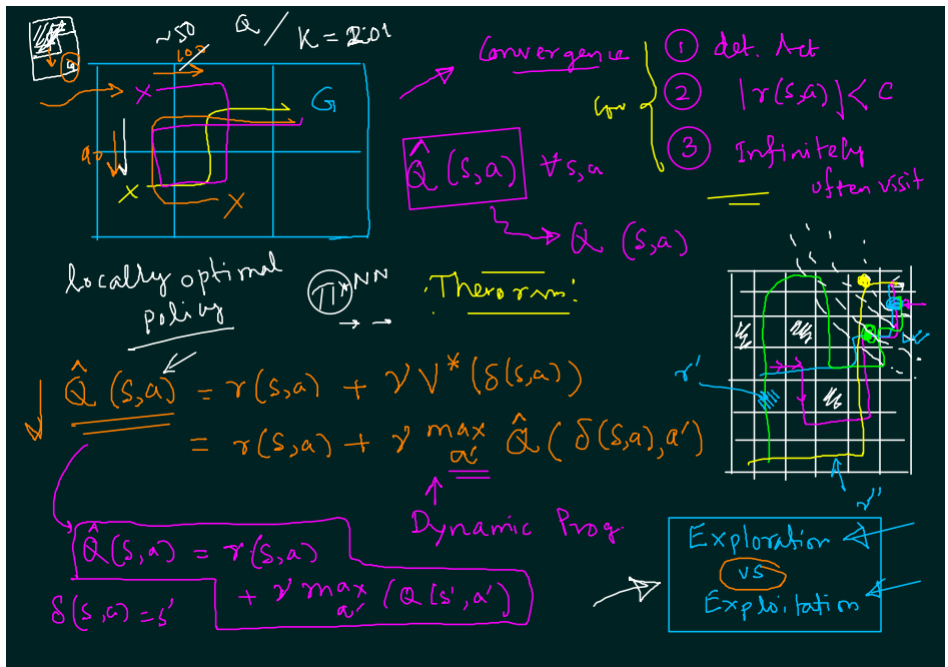 ~50
100
Q / K = 201
G
90
X
X
X
Convergence
① det. Act
② |r(s,a)| < C
③ Infinitely
often visit
Q̂ (s,a) ∀ s,a
Q (s,a)
locally optimal
policy
π* NN
: Theorm :
Q̂ (s,a) = r(s,a) + γ V* (δ(s,a))
= r(s,a) + γ max Q̂ ( δ(s,a), a')
a'
Dynamic Prog.
r'
r''
Q̂(s,a) = r(s,a)
+ γ max (Q(s',a'))
a'
δ(s,a) = s'
Exploration
vs
Exploitation